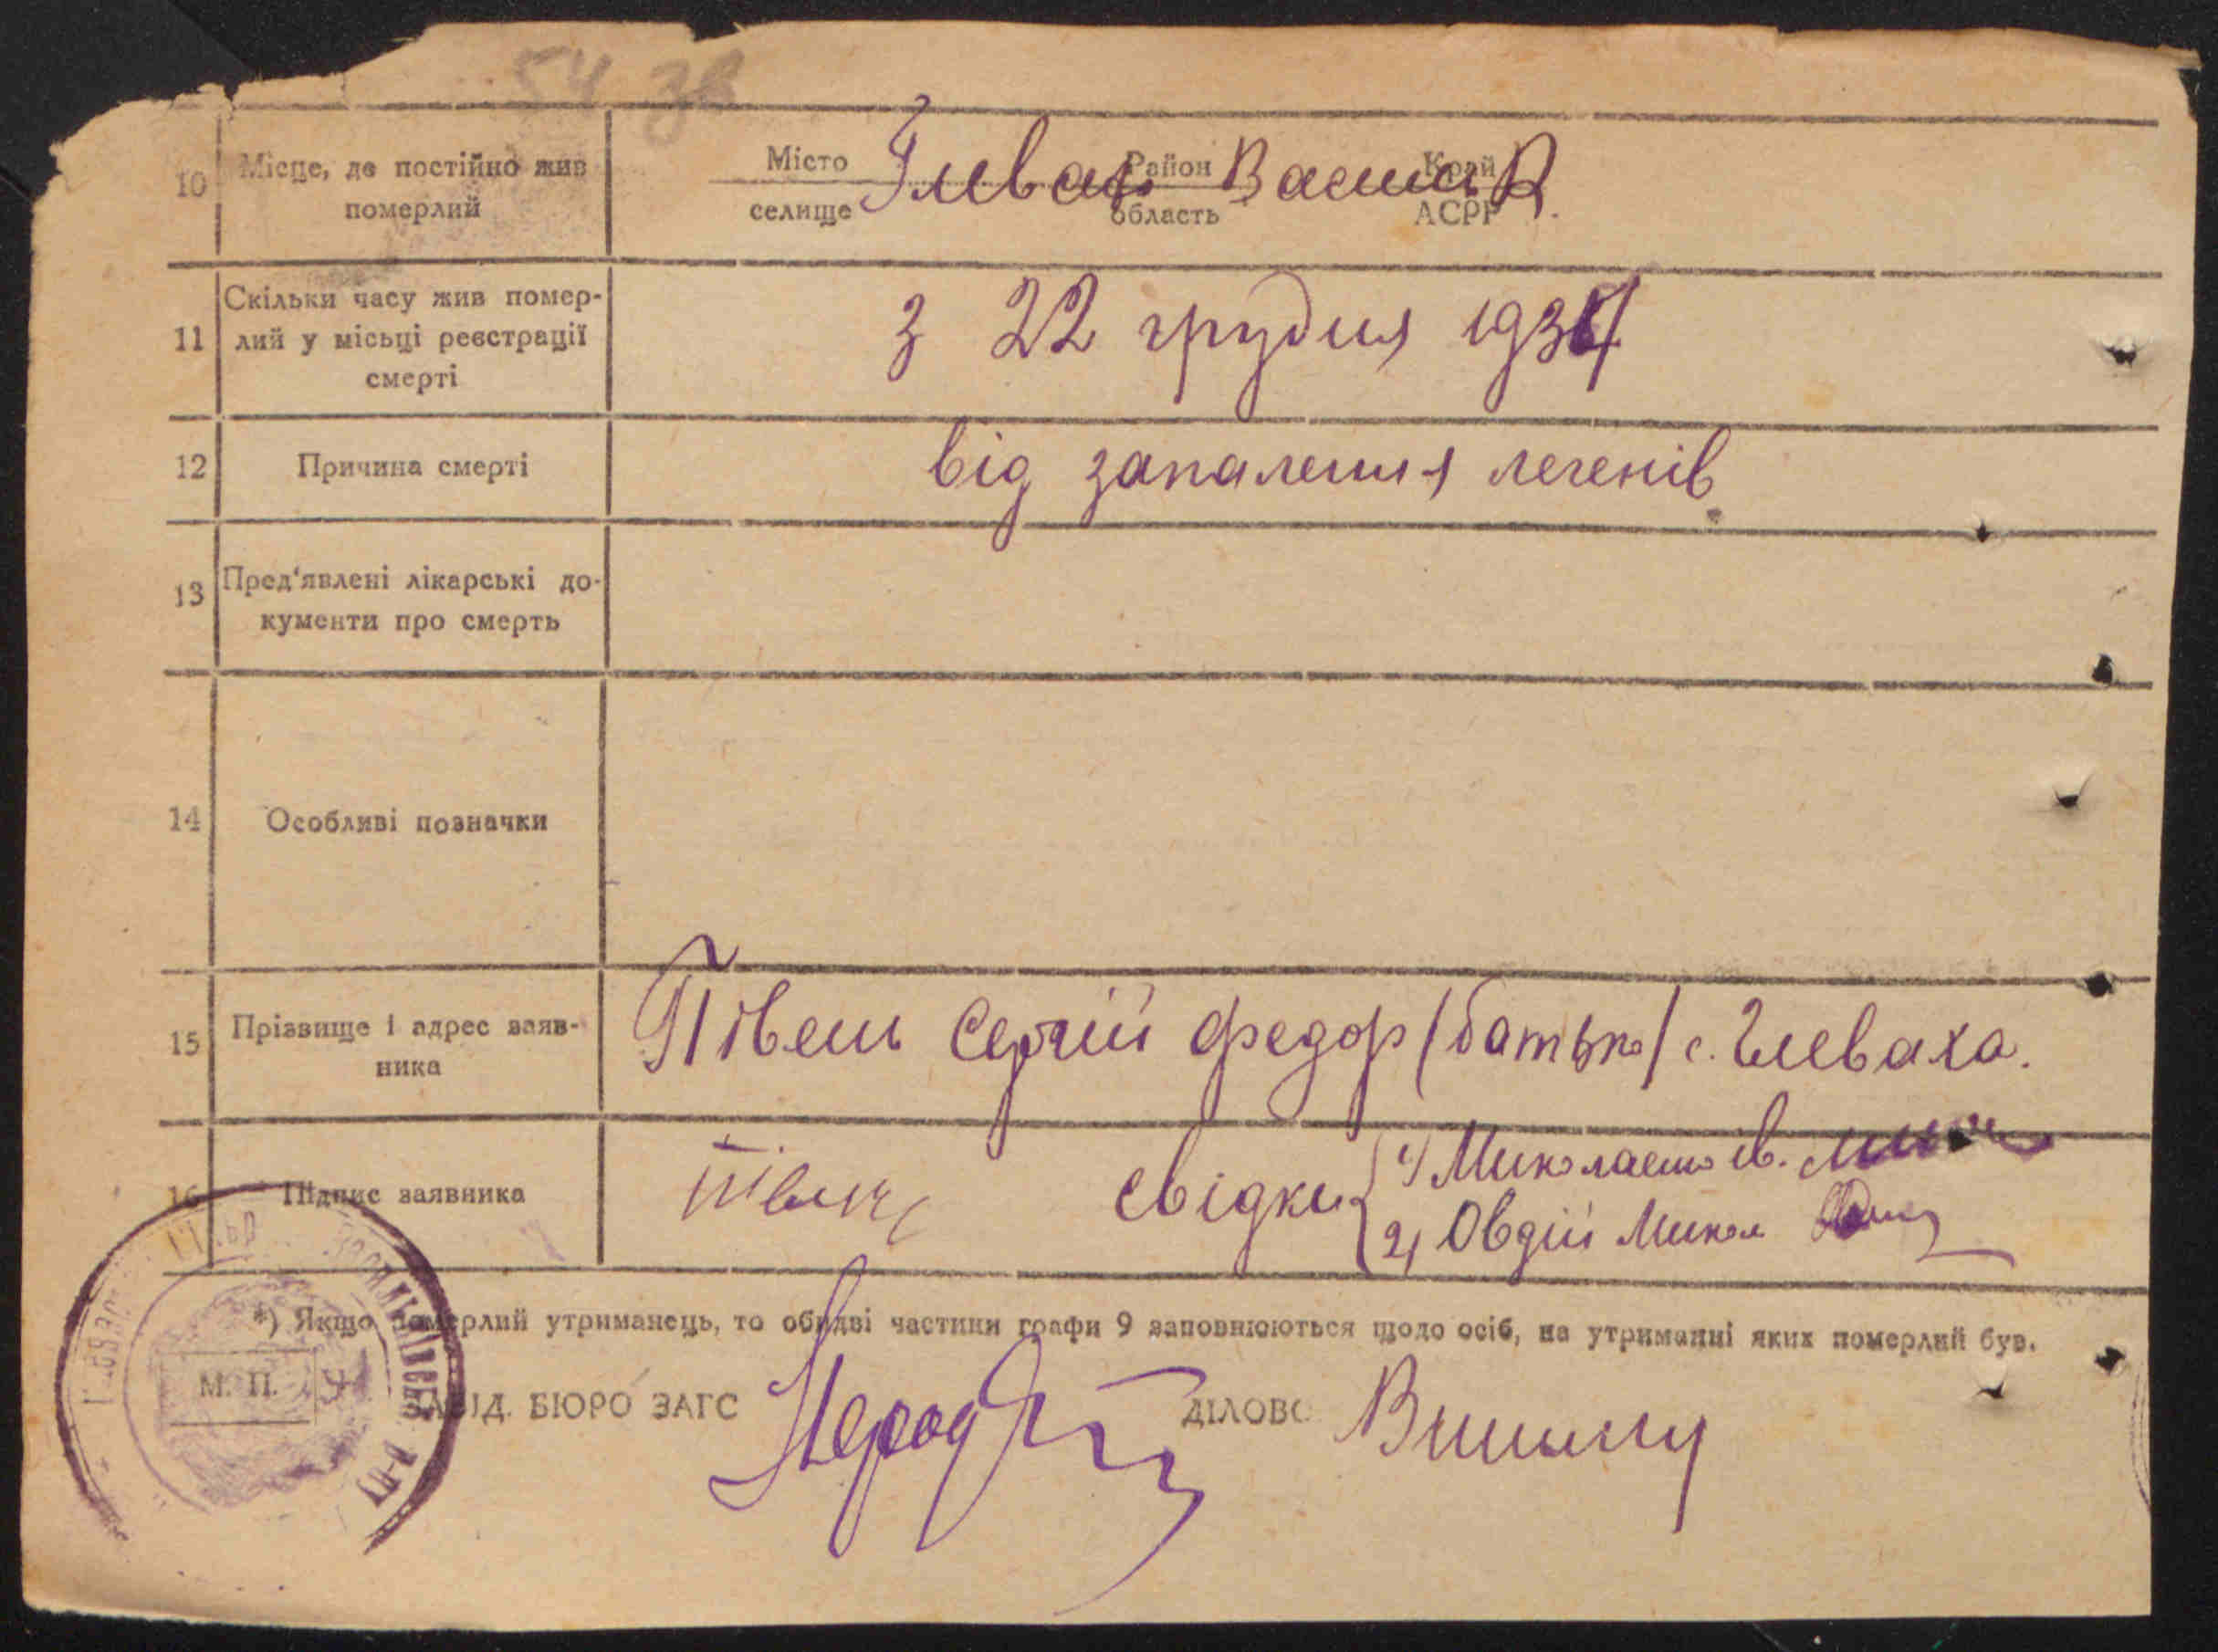 54 зв
10 Місце, де постійно жив померлий
Місто селище Район область Край АСРР
Глеваха Васильк
11 Скільки часу жив помер-
лий у місьці реєстрації
смерті
з 22 грудня 1934
12 Причина смерті
від запалення легенів
13 Пред'явлені лікарські до-
кументи про смерть
14 Особливі позначки
15 Прізвище і адрес заяв-
ника
Півень Сергій Федор /батько/ с. Глеваха.
16 Підпис заявника
Свідки
1) Миколаенко Ів.
2) Овдій Микол
*) Якщо померлий утриманець, то обидві частини графи 9 заповнюються щодо осіб, на утриманні яких померлий був.
М. П.
ЗАВІД. БЮРО ЗАГС
ДІЛОВО